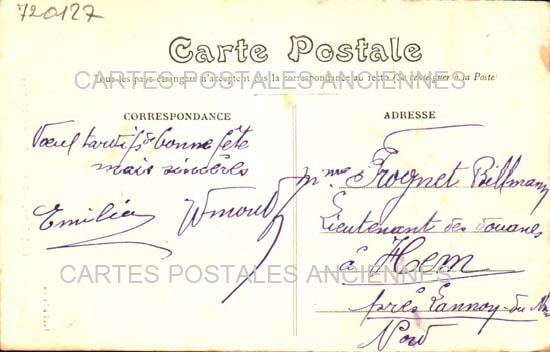 720127
Carte Postale
Tous les pays étrangers n'acceptent pas la correspondance au recto (Se renseigner à la Poste)
CARTES POSTALES ANCIENNES
CORRESPONDANCE
Vœux tardifs de bonne fête
mais sincères
Emilia
ADRESSE
Mme Frognet Billmany
Lieutenant des douanes
à Hem
près Lannoy du Nord
Nord
CARTES POSTALES ANCIENNES